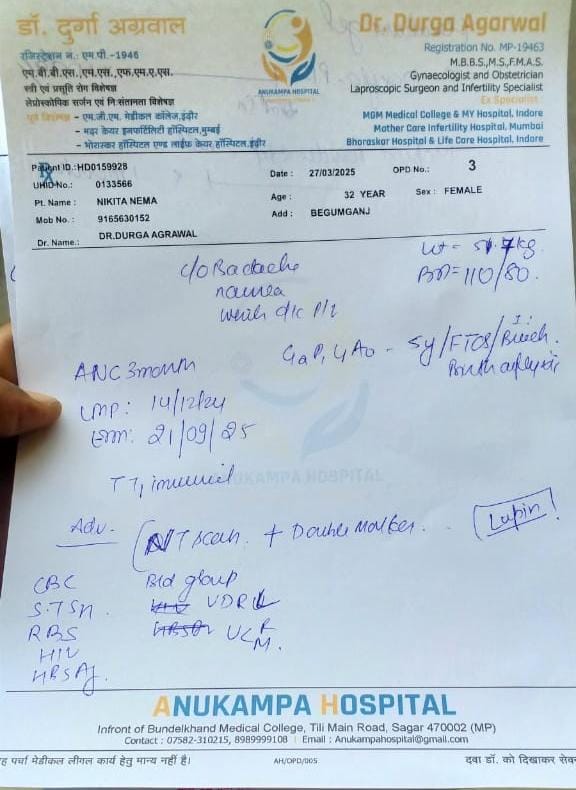 डॉ. दुर्गा अग्रवाल
रजिस्ट्रेशन नं.: एम.पी.-1946
एम.बी.बी.एस.,एम.एस.,एफ.एम.ए.एस.
स्त्री एवं प्रसूति रोग विशेषज्ञ
लेप्रोस्कोपिक सर्जन एवं निःसंतानता विशेषज्ञ
पूर्व विशेषज्ञ - एम.जी.एम. मेडीकल कॉलेज,इंदौर
- मदर केयर इनफर्टिलिटी हॉस्पिटल,मुम्बई
- भोरास्कर हॉस्पिटल एण्ड लाईफ केयर हॉस्पिटल,इंदौर
ANUKAMPA HOSPITAL
Dr. Durga Agarwal
Registration No. MP-19463
M.B.B.S.,M.S.,F.M.A.S.
Gynaecologist and Obstetrician
Laproscopic Surgeon and Infertility Specialist
Ex Specialist -
MGM Medical College & MY Hospital, Indore
Mother Care Infertility Hospital, Mumbai
Bhoraskar Hospital & Life Care Hospital, Indore
Patient ID.:HD0159928 Date : 27/03/2025 OPD No.: 3
UHID No.: 0133566 Age : 32 YEAR Sex : FEMALE
Pt. Name : NIKITA NEMA Add : BEGUMGANJ
Mob No. : 9165630152
Dr. Name.: DR.DURGA AGRAWAL
BP=110/80.
c/o Backache
nausea
ANC 3month
LMP: 14/12/24
EDD: 21/09/25
ANUKAMPA HOSPITAL
Adv. NT scan + Double Marker. Lupin
CBC Bld group
S.TSH VDRL
RBS
HIV
HBsAg.
ANUKAMPA HOSPITAL
Infront of Bundelkhand Medical College, Tili Main Road, Sagar 470002 (MP)
Contact : 07582-310215, 8989999108 | Email : Anukampahospital@gmail.com
ह पर्चा मेडीकल लीगल कार्य हेतु मान्य नहीं है। AH/OPD/005 दवा डॉ. को दिखाकर सेव